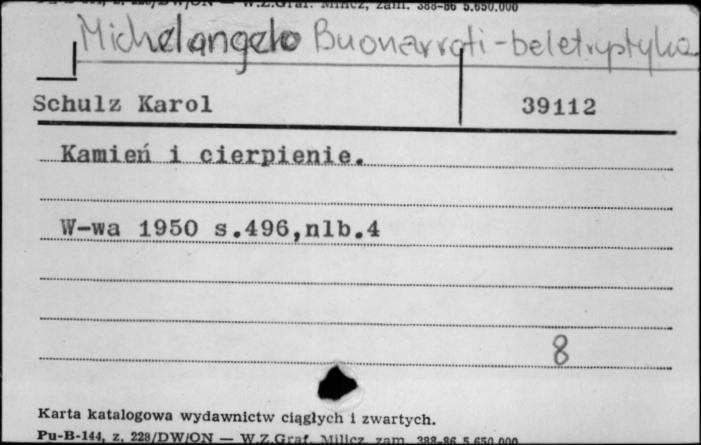 Pu-B-144, z. 228/DW/ON — W.Z.Graf. Milicz, zam. 388-86 5.650.000
Michelangelo Buonarroti - beletrystyka
Schulz Karol 39112
Kamień i cierpienie.
W-wa 1950 s.496,nlb.4
8
Karta katalogowa wydawnictw ciągłych i zwartych.
Pu-B-144, z. 228/DW/ON — W.Z.Graf. Milicz, zam. 388-86 5.650.000